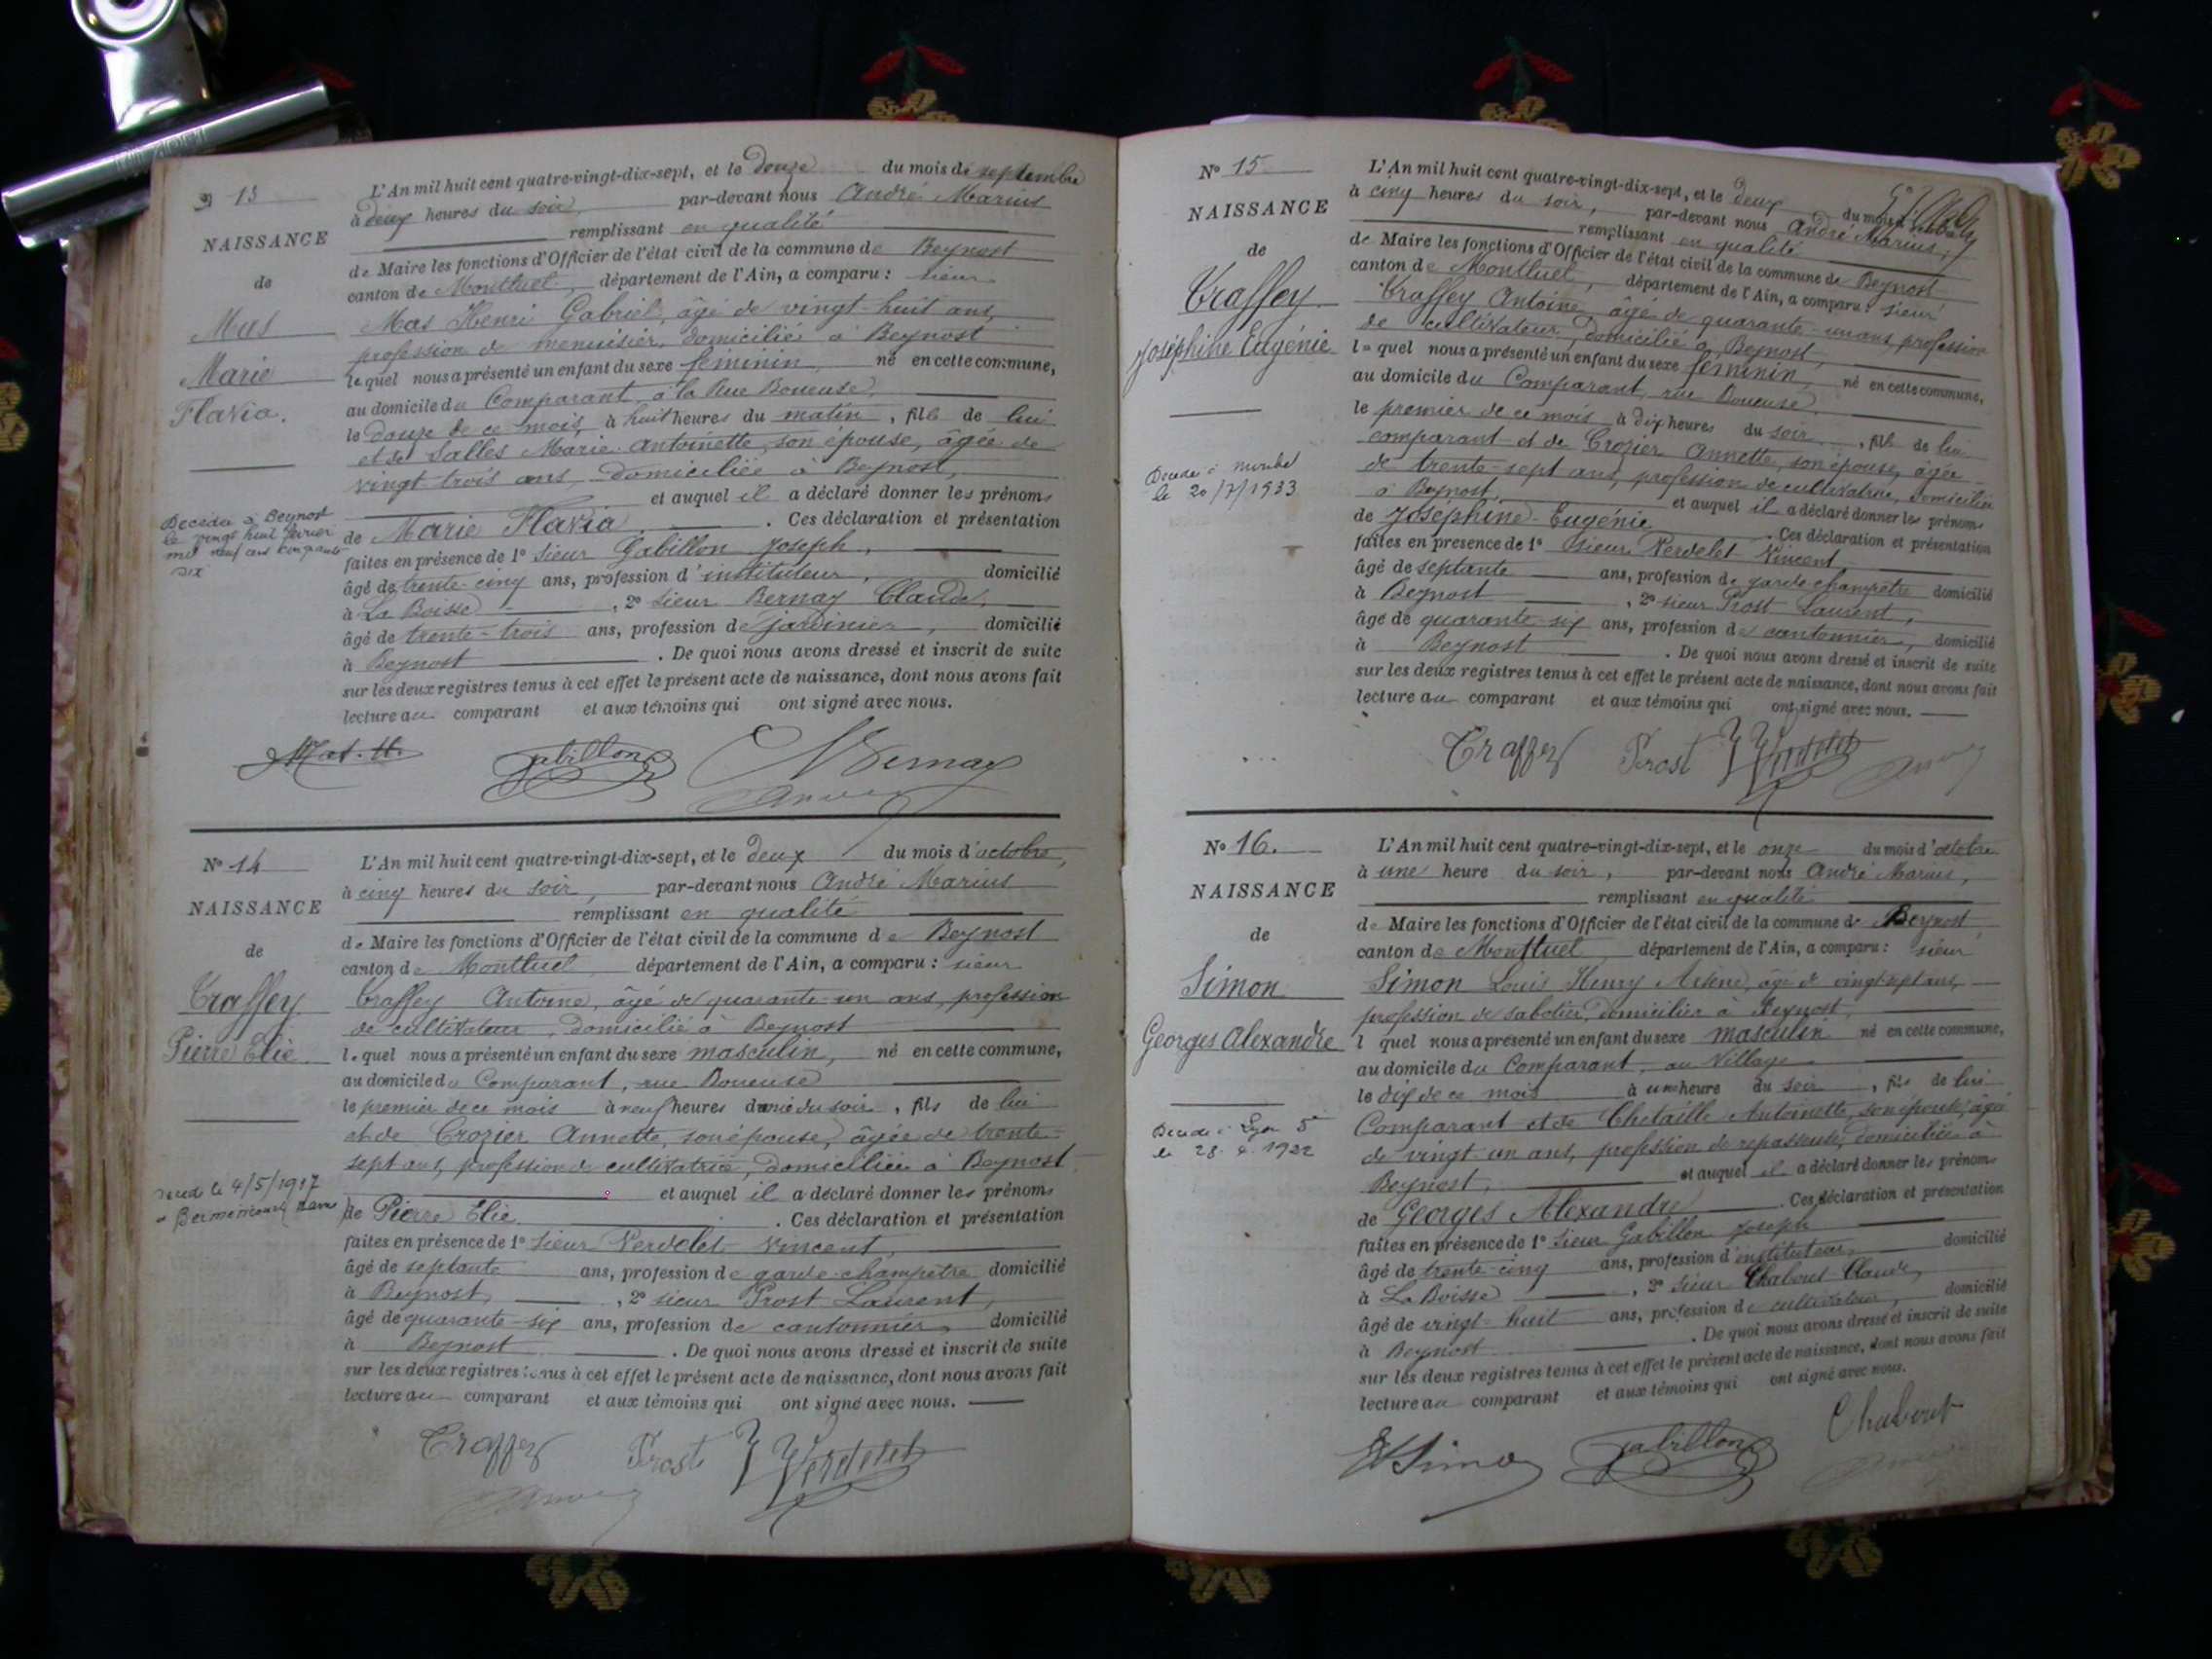 13
NAISSANCE
de
Mas
Marie
Flavia.
Décédée à Beynost
le vingt huit février
mil neuf cent cinquante
dix
L'An mil huit cent quatre-vingt-dix-sept, et le douze du mois de septembre
à deux heures du soir, par-devant nous André Marius
remplissant en qualité
de Maire les fonctions d'Officier de l'état civil de la commune de Beynost
canton de Montluel, département de l'Ain, a comparu : sieur
Mas Henri Gabriel, âgé de vingt-huit ans,
profession de menuisier, domicilié à Beynost
lequel nous a présenté un enfant du sexe féminin, né en cette commune,
au domicile du Comparant, à la Rue Boueuse,
le douze de ce mois, à huit heures du matin, fille de lui
et de Salles Marie Antoinette, son épouse, âgée de
vingt-trois ans, domiciliée à Beynost,
et auquel il a déclaré donner les prénoms
de Marie Flavia. Ces déclaration et présentation
faites en présence de 1° sieur Gabillon Joseph,
âgé de trente-cinq ans, profession d'instituteur, domicilié
à La Boisse, 2° sieur Bernay Claude,
âgé de trente-trois ans, profession de jardinier, domicilié
à Beynost. De quoi nous avons dressé et inscrit de suite
sur les deux registres tenus à cet effet le présent acte de naissance, dont nous avons fait
lecture au comparant et aux témoins qui ont signé avec nous.
Mas. H. Gabillon Bernay
N° 14
NAISSANCE
de
Traffey
Pierre Elie
le 4/5/1917
L'An mil huit cent quatre-vingt-dix-sept, et le deux du mois d'octobre,
à cinq heures du soir, par-devant nous André Marius
remplissant en qualité
de Maire les fonctions d'Officier de l'état civil de la commune de Beynost
canton de Montluel département de l'Ain, a comparu : sieur
Traffey Antoine, âgé de quarante-un ans, profession
de cultivateur, domicilié à Beynost
lequel nous a présenté un enfant du sexe masculin, né en cette commune,
au domicile du Comparant, rue Boueuse
le premier de ce mois à neuf heures demie du soir, fils de lui
et de Crozier Annette, son épouse, âgée de trente-
sept ans, profession de cultivatrice, domiciliée à Beynost
et auquel il a déclaré donner les prénoms
de Pierre Elie. Ces déclaration et présentation
faites en présence de 1° sieur Verdelet Vincent,
âgé de septante ans, profession de garde-champêtre domicilié
à Beynost, 2° sieur Prost Laurent,
âgé de quarante-six ans, profession de cantonnier, domicilié
à Beynost. De quoi nous avons dressé et inscrit de suite
sur les deux registres tenus à cet effet le présent acte de naissance, dont nous avons fait
lecture au comparant et aux témoins qui ont signé avec nous.
Traffey Prost Verdelet
N° 15
NAISSANCE
de
Traffey
Joséphine Eugénie
Décédée à Miribel
le 20/7/1933
L'An mil huit cent quatre-vingt-dix-sept, et le deux du mois d'octobre
à cinq heures du soir, par-devant nous André Marius,
remplissant en qualité
de Maire les fonctions d'Officier de l'état civil de la commune de Beynost
canton de Montluel, département de l'Ain, a comparu : sieur
Traffey Antoine, âgé de quarante-un ans, profession
de cultivateur, domicilié à Beynost,
lequel nous a présenté un enfant du sexe féminin, né en cette commune,
au domicile du Comparant, rue Boueuse,
le premier de ce mois à dix heures du soir, fille de lui
comparant et de Crozier Annette, son épouse, âgée
de trente-sept ans, profession de cultivatrice, domiciliée
à Beynost, et auquel il a déclaré donner les prénoms
de Joséphine-Eugénie. Ces déclaration et présentation
faites en présence de 1° sieur Verdelet Vincent,
âgé de septante ans, profession de garde-champêtre domicilié
à Beynost, 2° sieur Prost Laurent,
âgé de quarante-six ans, profession de cantonnier, domicilié
à Beynost. De quoi nous avons dressé et inscrit de suite
sur les deux registres tenus à cet effet le présent acte de naissance, dont nous avons fait
lecture au comparant et aux témoins qui ont signé avec nous.
Traffey Prost Verdelet
N° 16.
NAISSANCE
de
Simon
Georges Alexandre
Décédé à Lyon 5e
le 28. 4. 1922
L'An mil huit cent quatre-vingt-dix-sept, et le onze du mois d'octobre
à une heure du soir, par-devant nous André Marius,
remplissant en qualité
de Maire les fonctions d'Officier de l'état civil de la commune de Beynost
canton de Montluel département de l'Ain, a comparu : sieur
Simon Louis Henry Arsène, âgé de vingt-sept ans,
profession de sabotier, domicilier à Beynost,
l quel nous a présenté un enfant du sexe masculin né en cette commune,
au domicile du Comparant, au Village
le dix de ce mois à une heure du soir, fils de lui
Comparant et de Chetaille Antoinette, son épouse, âgée
de vingt-un ans, profession de repasseuse, domiciliée à
Beynost, et auquel il a déclaré donner les prénoms
de Georges Alexandre. Ces déclaration et présentation
faites en présence de 1° sieur Gabillon Joseph
âgé de trente-cinq ans, profession d'instituteur, domicilié
à La Boisse, 2° sieur Chabout Claude,
âgé de vingt-huit ans, profession de cultivateur, domicilié
à Beynost. De quoi nous avons dressé et inscrit de suite
sur les deux registres tenus à cet effet le présent acte de naissance, dont nous avons fait
lecture au comparant et aux témoins qui ont signé avec nous.
Simon Gabillon